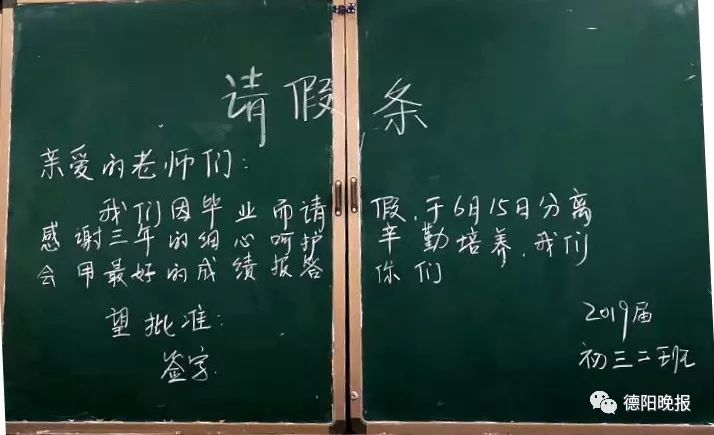 请假条
亲爱的老师们:
我们因毕业而请假,于6月15日分离
感谢三年的细心呵护辛勤培养,我们
会用最好的成绩报答你们
望批准:
签字
2019届
初三二班
德阳晚报